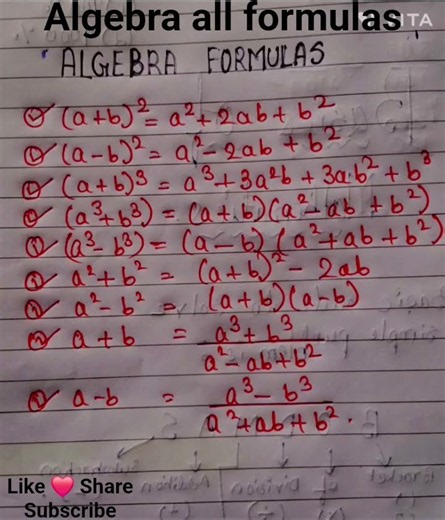 Algebra all formulas
ALGEBRA FORMULAS
(a+b)² = a²+2ab+b²
(a-b)² = a²-2ab+b²
(a+b)³ = a³+3a²b+3a.b²+b³
(a³+b³) = (a+b)(a²-ab+b²)
(a³-b³) = (a-b)(a²+ab+b²)
a²+b² = (a+b)²-2ab
a²-b² = (a+b)(a-b)
a+b = a³+b³
a²-ab+b²
a-b = a³-b³
a²+ab+b².
Like ❤️ Share
Subscribe